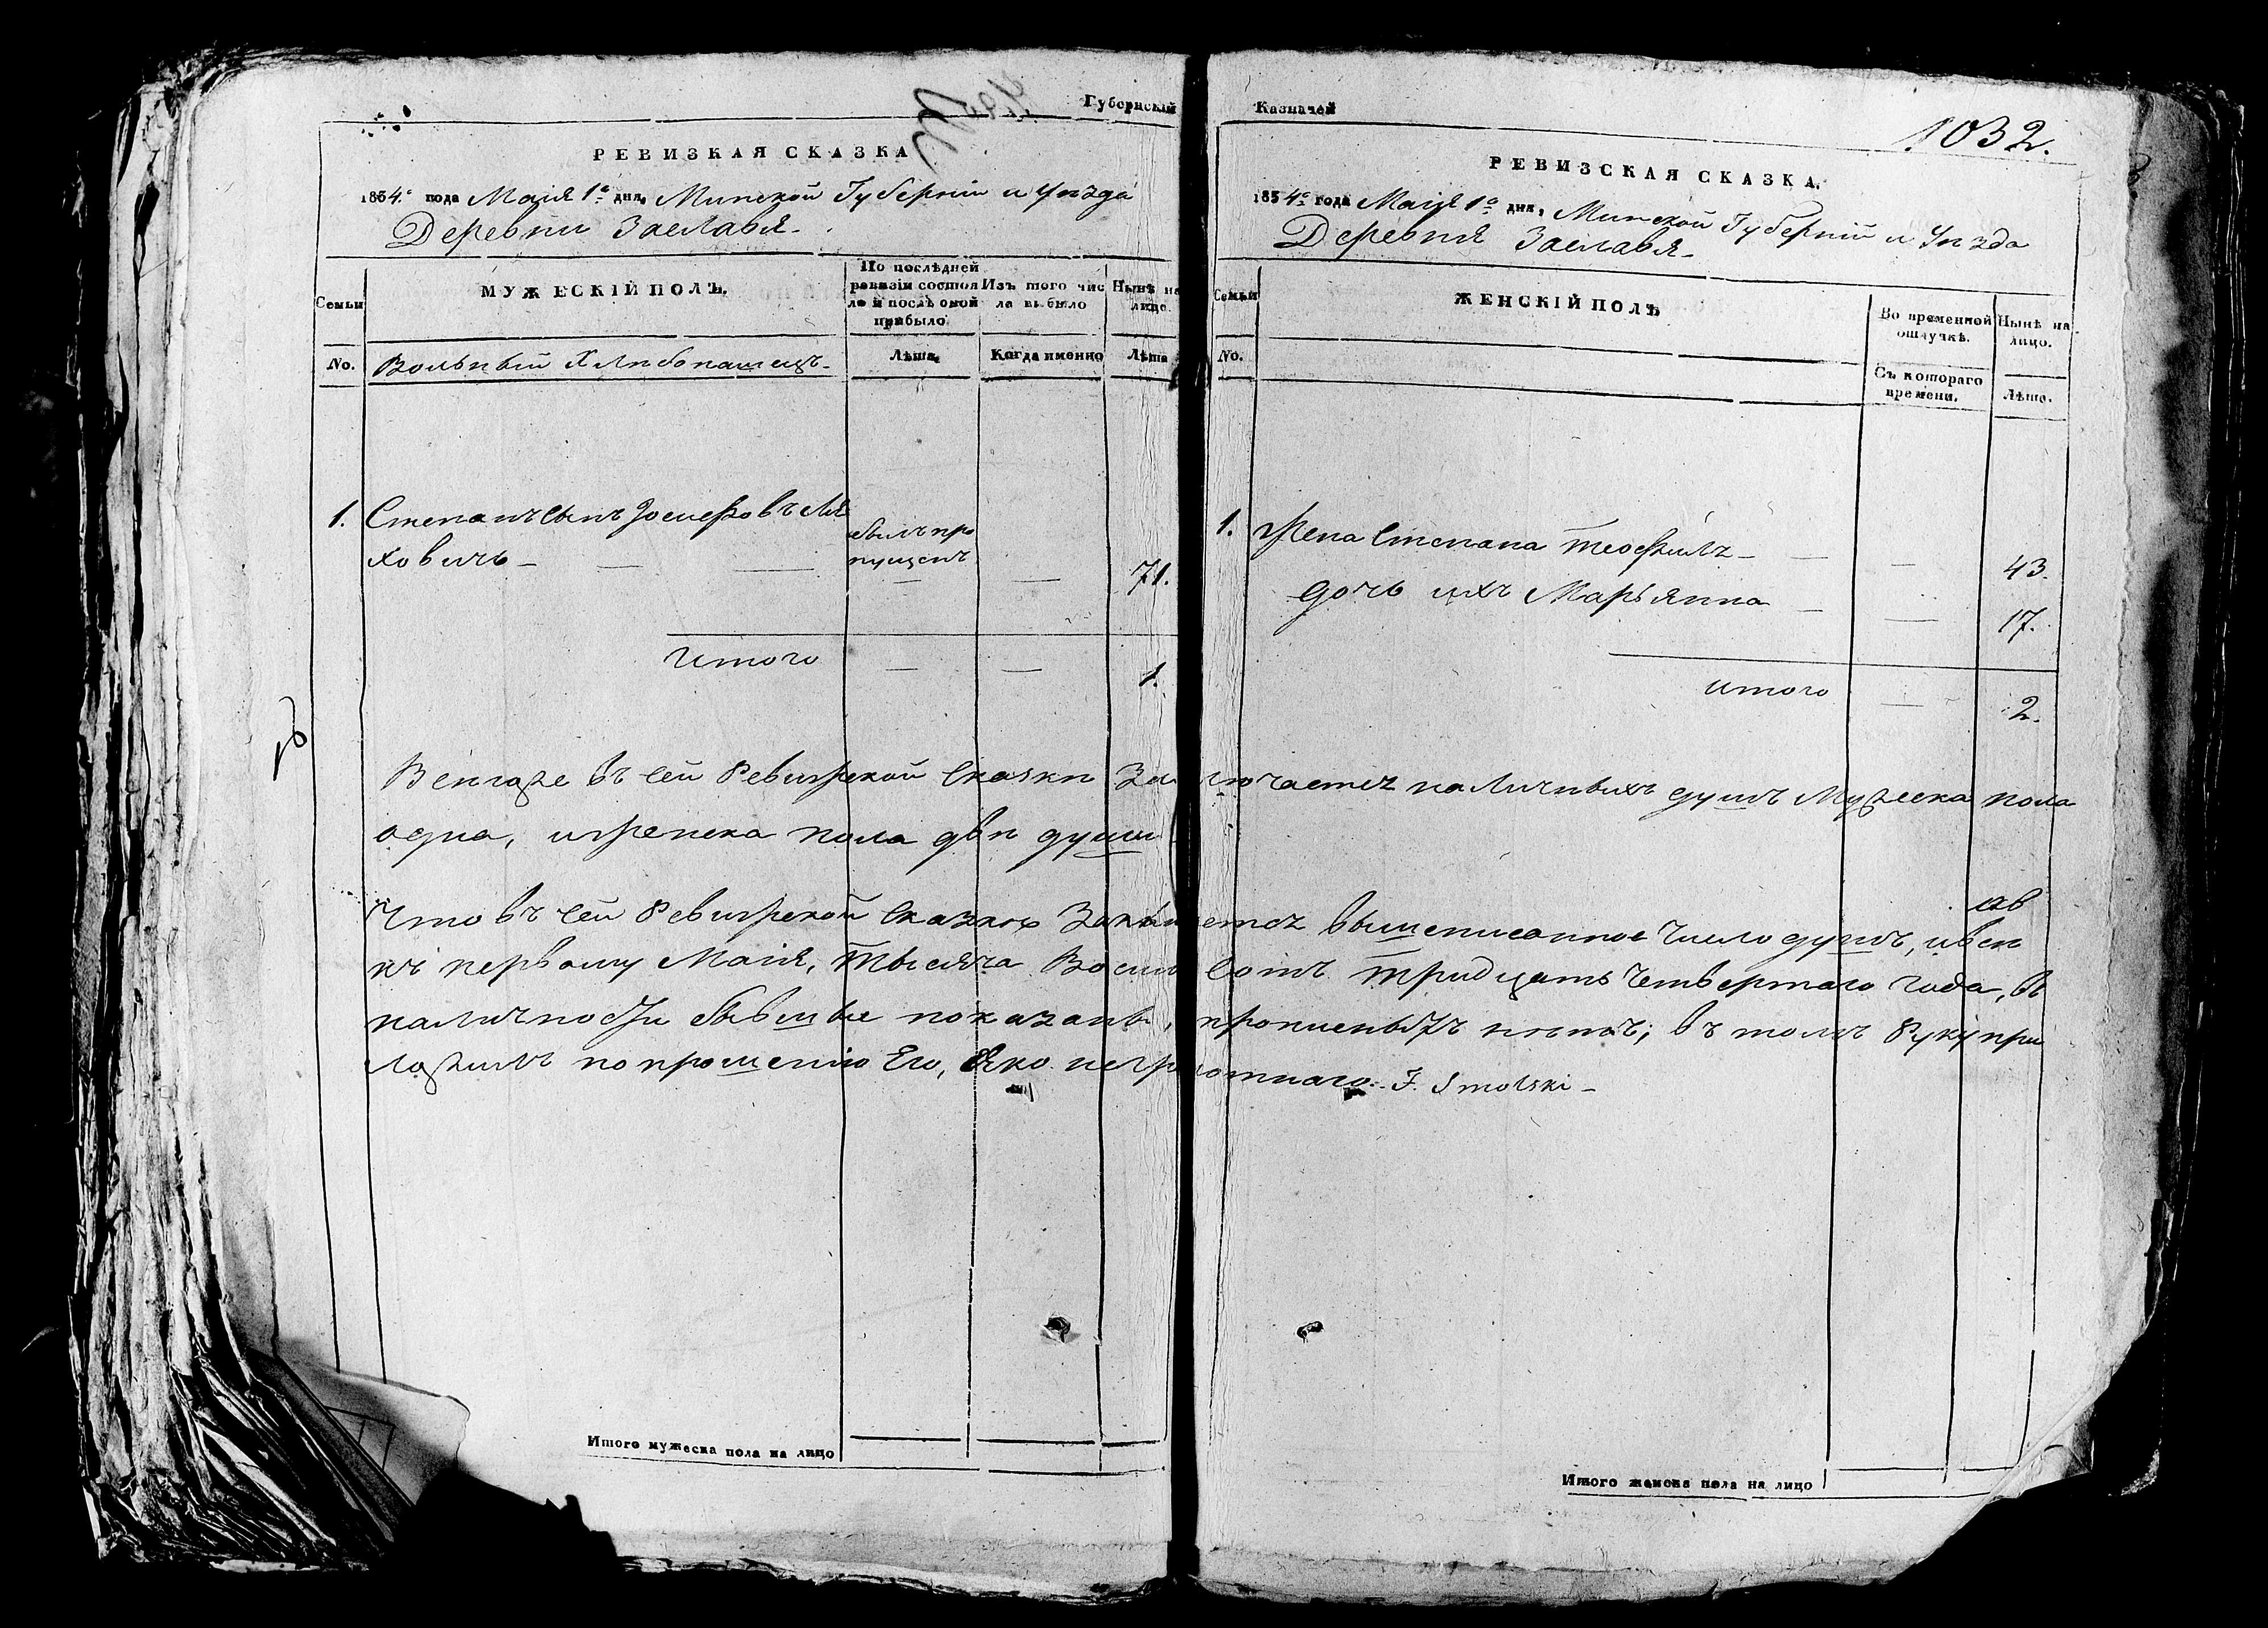 Губернскій
РЕВИЗКАЯ СКАЗКА
1834го года Маія 1го дня, Минской Губерніи и Уѣзда
Деревни Заславя
Семьи
МУЖЕСКІЙ ПОЛЪ.
По послѣдней ревизіи состоя ло и послѣ оной прибыло.
Изъ того чис ла выбыло
Нынѣ на лицо.
No.
Вольный Хлѣбопашецъ
Лѣта.
Когда именно
Лѣта
1. Степанъ сынъ Іосифовъ Ля
ховичъ
былъ про
пущенъ
71.
Итого
1.
Казначей
1032.
РЕВИЗСКАЯ СКАЗКА.
1834го года Маія 1го дня, Минской Губерніи и Уѣзда
Деревня Заславя
Семьи
ЖЕНСКІЙ ПОЛЪ
Во временной отлучкѣ.
Нынѣ на лицо.
No.
Съ котораго времени.
Лѣта.
1. Жена Степана
43.
дочь ихъ Марьянна
17.
итого
2.
въ сей Ревижской Сказкѣ Заключается наличныхъ душъ Мужеска пола
одна, и женска пола двѣ души
Что въ сей Ревижской Сказкѣ вышеписанное Число душъ, и всѣ
къ первому Маія, Тысяча Восим сотъ Тридцать Четвертаго Года, въ
наличности бывшые показаны, прописныхъ нѣтъ; въ томъ Руку при
ложилъ по прошению Его, яко неграмотнаго. J. Smolski
Итого мужеска пола на лицо
Итого женска пола на лицо